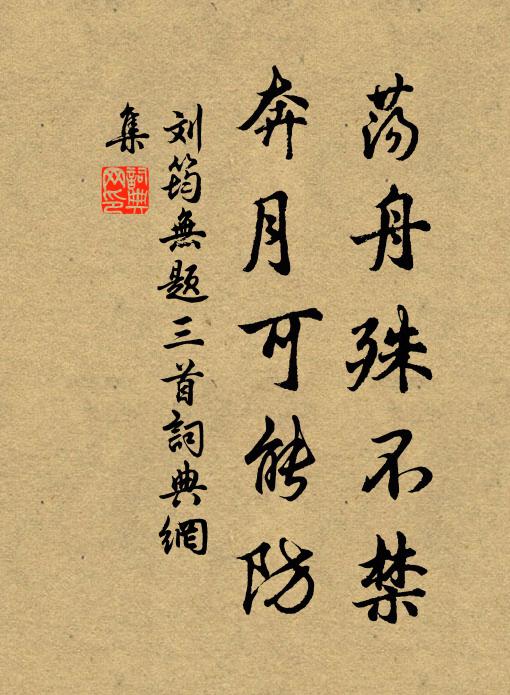 荡舟殊不禁
奔月可能防
刘筠無题三首詞典網
集
詞典網印